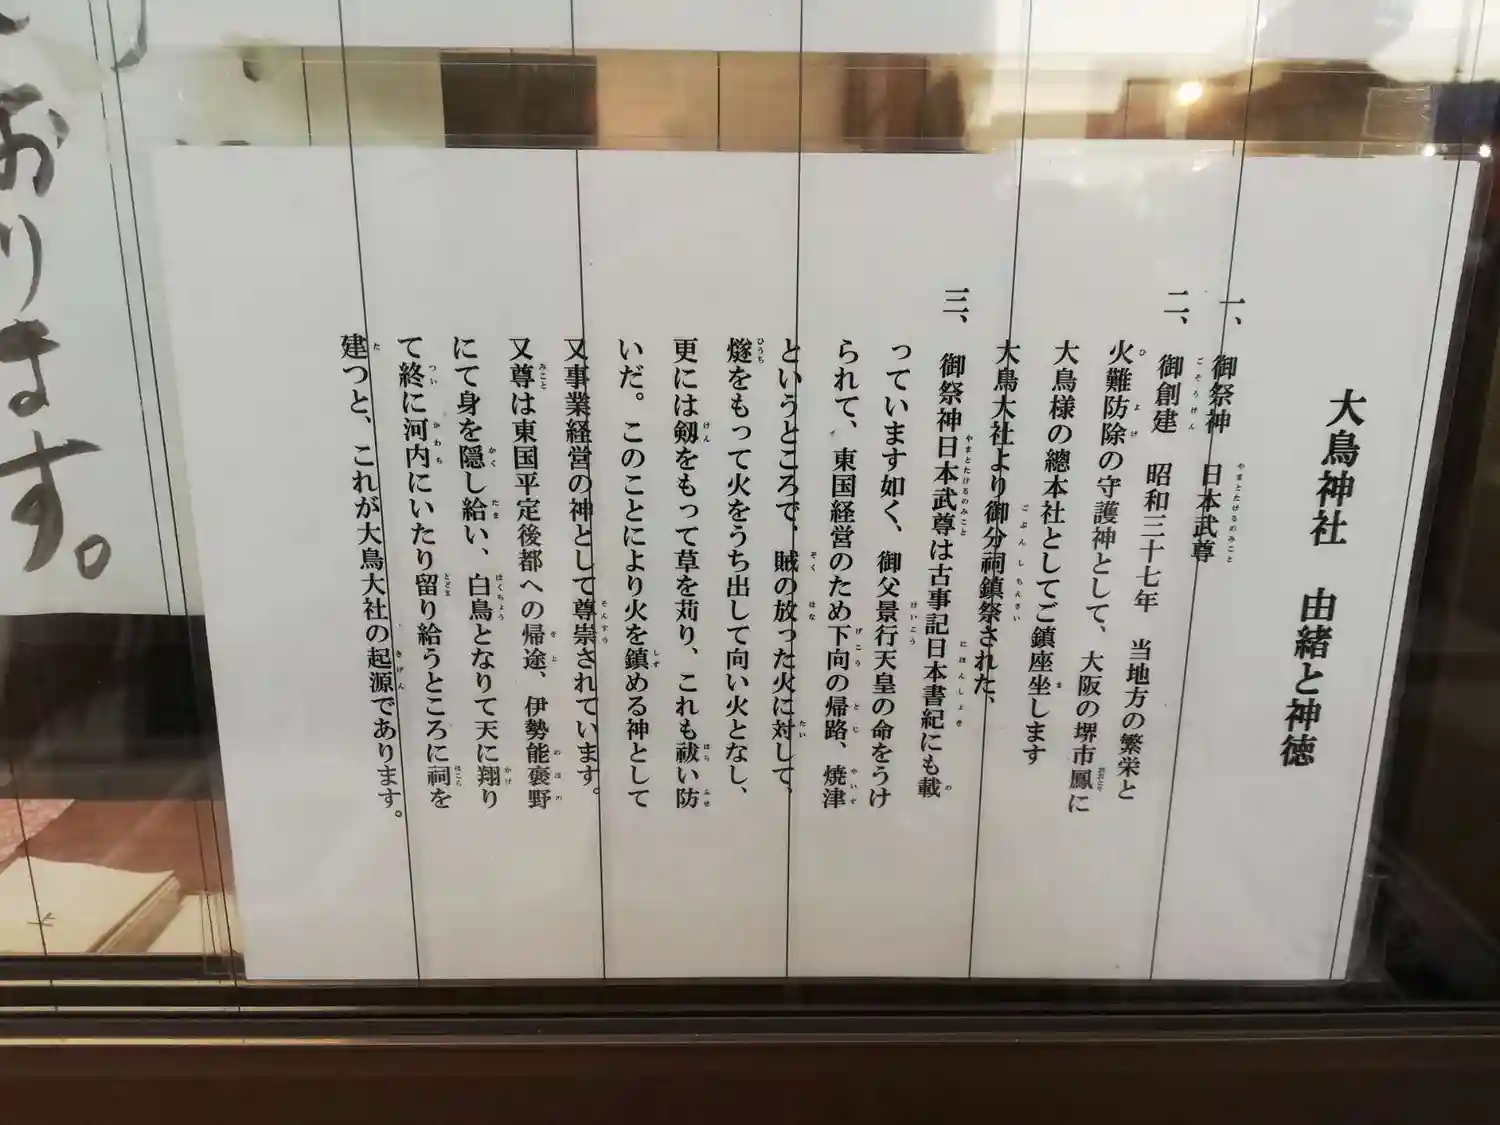 大鳥神社　由緒と神徳
一、御祭神　日本武尊
二、御創建　昭和三十七年　当地方の繁栄と
火難防除の守護神として、大阪の堺市鳳に
大鳥様の總本社としてご鎮座坐します
大鳥大社より御分祠鎮祭された、
三、御祭神日本武尊は古事記日本書紀にも載
っています如く、御父景行天皇の命をうけ
られて、東国経営のため下向の帰路、焼津
というところで、賊の放った火に対して、
燧をもって火をうち出して向い火となし、
更には剱をもって草を苅り、これも祓い防
いだ。このことにより火を鎮める神として
又事業経営の神として尊崇されています。
又尊は東国平定後都への帰途、伊勢能褒野
にて身を隠し給い、白鳥となりて天に翔り
て終に河内にいたり留り給うところに祠を
建つと、これが大鳥大社の起源であります。
おります。